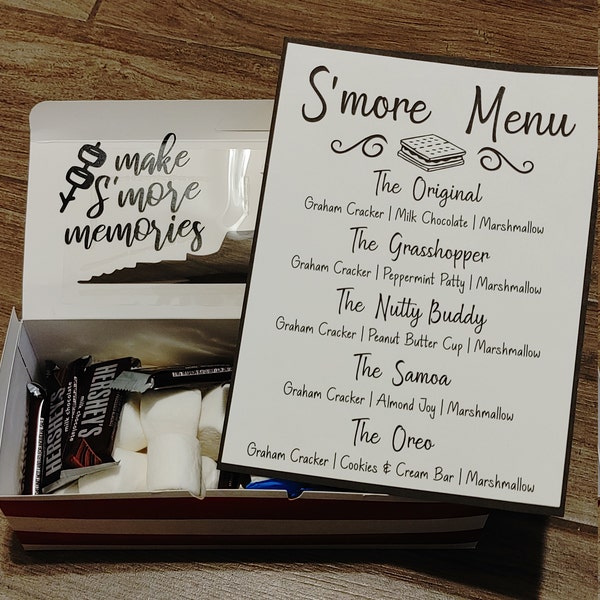 make
S'more
memories
HERSHEY'S
milk chocolate
HERSHEY'S
milk chocolate
S'more Menu
The Original
Graham Cracker | Milk Chocolate | Marshmallow
The Grasshopper
Graham Cracker | Peppermint Patty | Marshmallow
The Nutty Buddy
Graham Cracker | Peanut Butter Cup | Marshmallow
The Samoa
Graham Cracker | Almond Joy | Marshmallow
The Oreo
Graham Cracker | Cookies & Cream Bar | Marshmallow